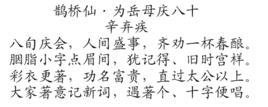 鹊桥仙·为岳母庆八十
辛弃疾
八旬庆会，人间盛事，齐劝一杯春酿。
胭脂小字点眉间，犹记得、旧时宫样。
彩衣更著，功名富贵，直过太公以上。
大家著意记新词，遇著个、十字便唱。